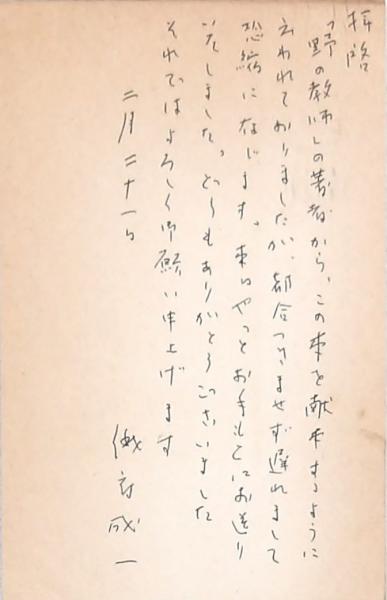 拝啓
「野の教師」の著者から、この本を献本するように
云われておりましたが、都合つきませず遅れまして
恐縮に存じます。やっとお手もとにお送り
いたしました。どうもありがとうございました
それではよろしく御願い申上げます
二月二十一日
成一